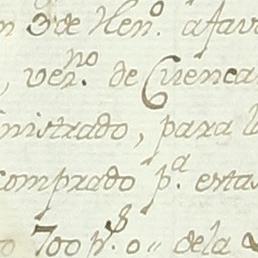 n 3 de Hen.º afav
, vez.no de Cuenca
nistrado, para l
comprado p.a estas
o 700 r.s o,, de la